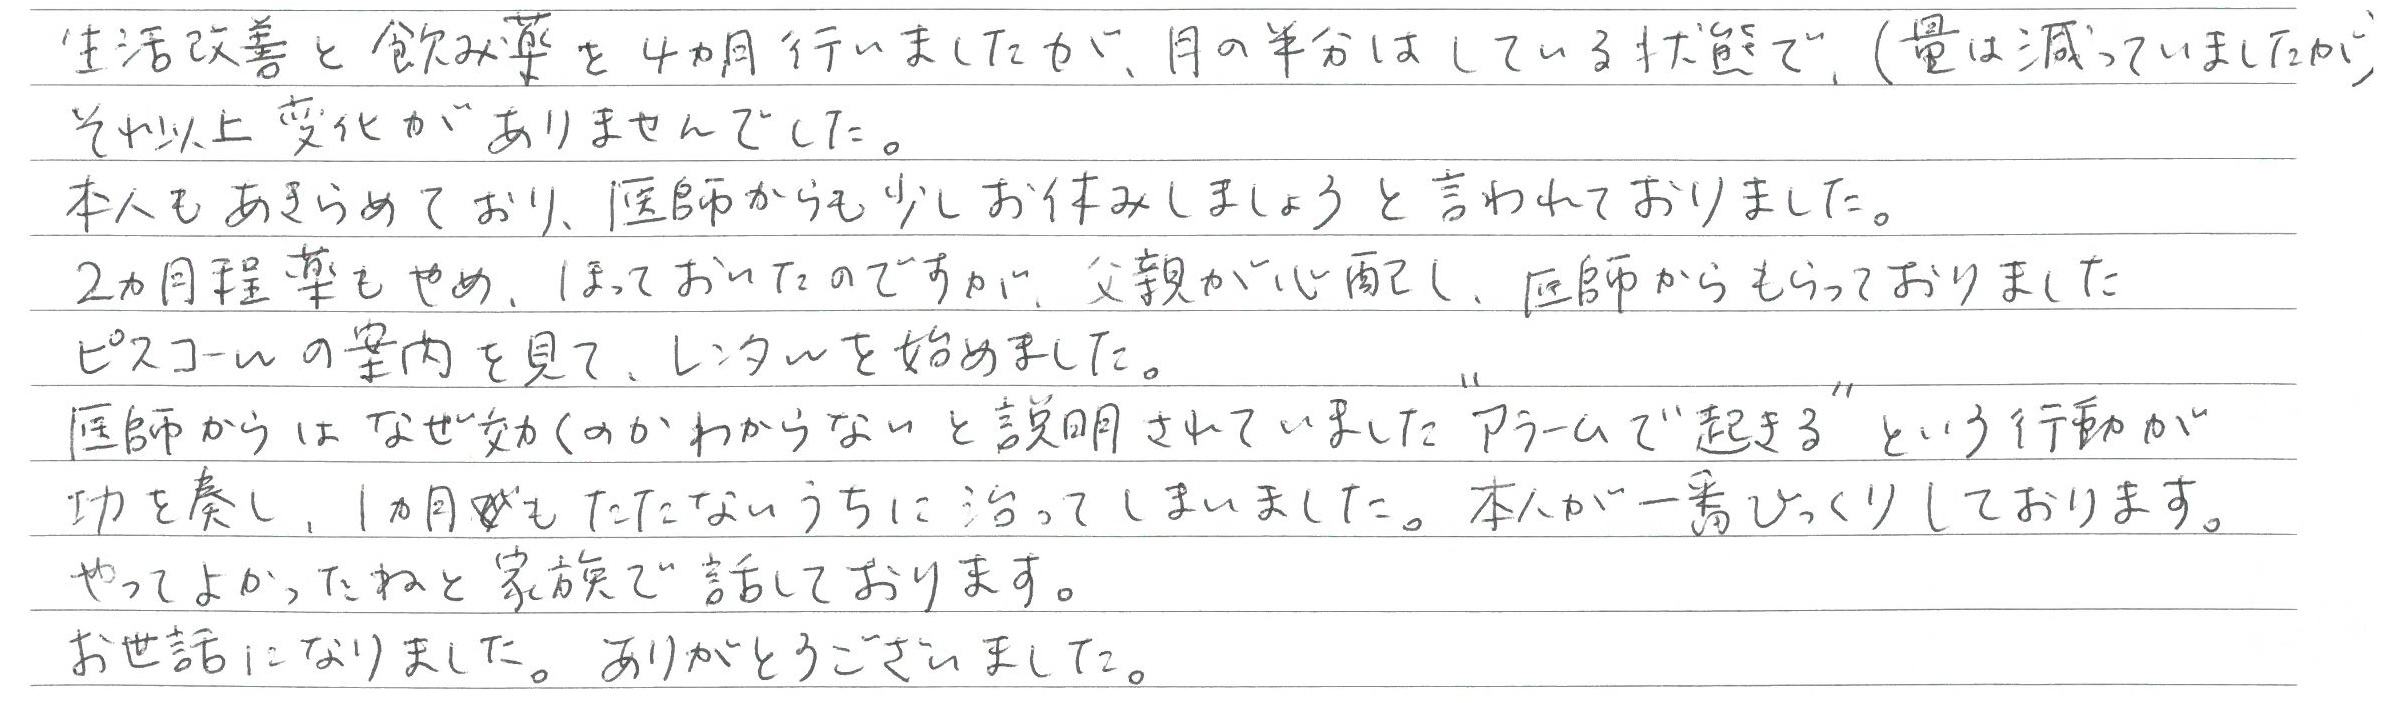 生活改善と飲み薬を4ヵ月行いましたが、月の半分はしている状態で、(量は減っていましたが)
それ以上変化がありませんでした。
本人もあきらめており、医師からも少しお休みしましょうと言われておりました。
2ヵ月程薬もやめ、ほっておいたのですが、父親が心配し、医師からもらっておりました
ピスコールの案内を見て、レンタルを始めました。
医師からはなぜ効くのかわからないと説明されていました"アラームで起きる"という行動が
功を奏し、1ヵ月もたたないうちに治ってしまいました。本人が一番びっくりしております。
やってよかったねと家族で話しております。
お世話になりました。ありがとうございました。